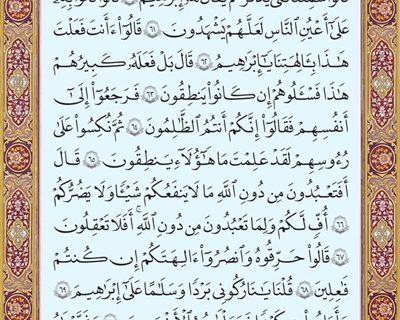 عَلَىٰٓ أَعْيُنِ ٱلنَّاسِ لَعَلَّهُمْ يَشْهَدُونَ ٦١ قَالُوٓا۟ ءَأَنتَ فَعَلْتَ
هَٰذَا بِـَٔالِهَتِنَا يَٰٓإِبْرَٰهِيمُ ٦٢ قَالَ بَلْ فَعَلَهُۥ كَبِيرُهُمْ
هَٰذَا فَسْـَٔلُوهُمْ إِن كَانُوا۟ يَنطِقُونَ ٦٣ فَرَجَعُوٓا۟ إِلَىٰٓ
أَنفُسِهِمْ فَقَالُوٓا۟ إِنَّكُمْ أَنتُمُ ٱلظَّٰلِمُونَ ٦٤ ثُمَّ نُكِسُوا۟ عَلَىٰ
رُءُوسِهِمْ لَقَدْ عَلِمْتَ مَا هَٰٓؤُلَآءِ يَنطِقُونَ ٦٥ قَالَ
أَفَتَعْبُدُونَ مِن دُونِ ٱللَّهِ مَا لَا يَنفَعُكُمْ شَيْـًٔا وَلَا يَضُرُّكُمْ
٦٦ أُفٍّ لَّكُمْ وَلِمَا تَعْبُدُونَ مِن دُونِ ٱللَّهِ ۖ أَفَلَا تَعْقِلُونَ
٦٧ قَالُوا۟ حَرِّقُوهُ وَٱنصُرُوٓا۟ ءَالِهَتَكُمْ إِن كُنتُمْ
فَٰعِلِينَ ٦٨ قُلْنَا يَٰنَارُ كُونِى بَرْدًا وَسَلَٰمًا عَلَىٰٓ إِبْرَٰهِيمَ ٦٩